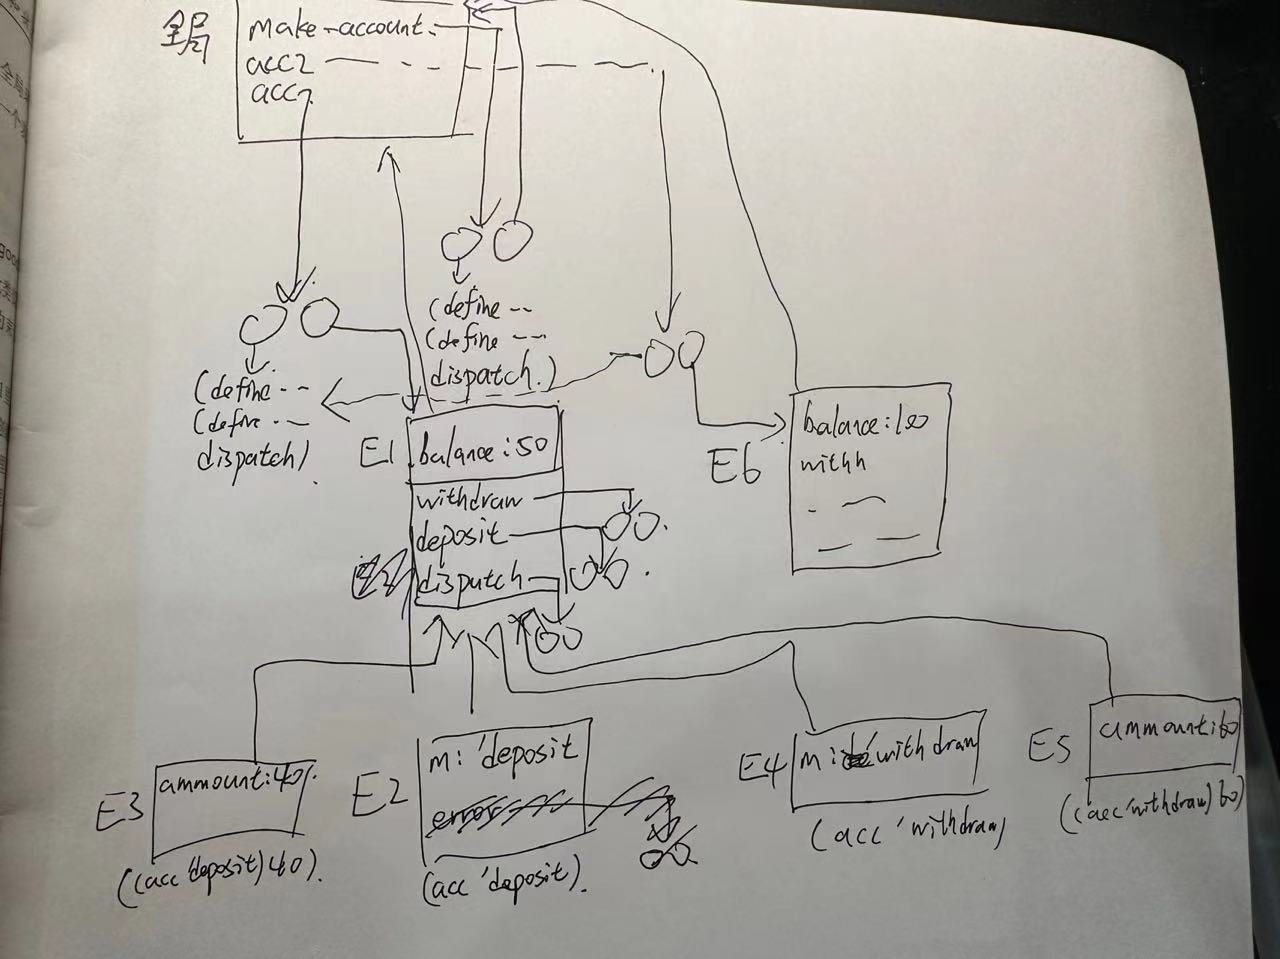 全局
make-account
acc2
acc
(define --
(define ---
dispatch.)
(define --
(define --
dispatch)
E1
balance:50
withdraw
deposit
dispatch
E6
balance:100
withh
E3
ammount:40
((acc 'deposit) 40).
E2
m: 'deposit
(acc 'deposit).
E4
m: 'withdraw
(acc 'withdraw)
E5
ammount:60
((acc 'withdraw) 60)